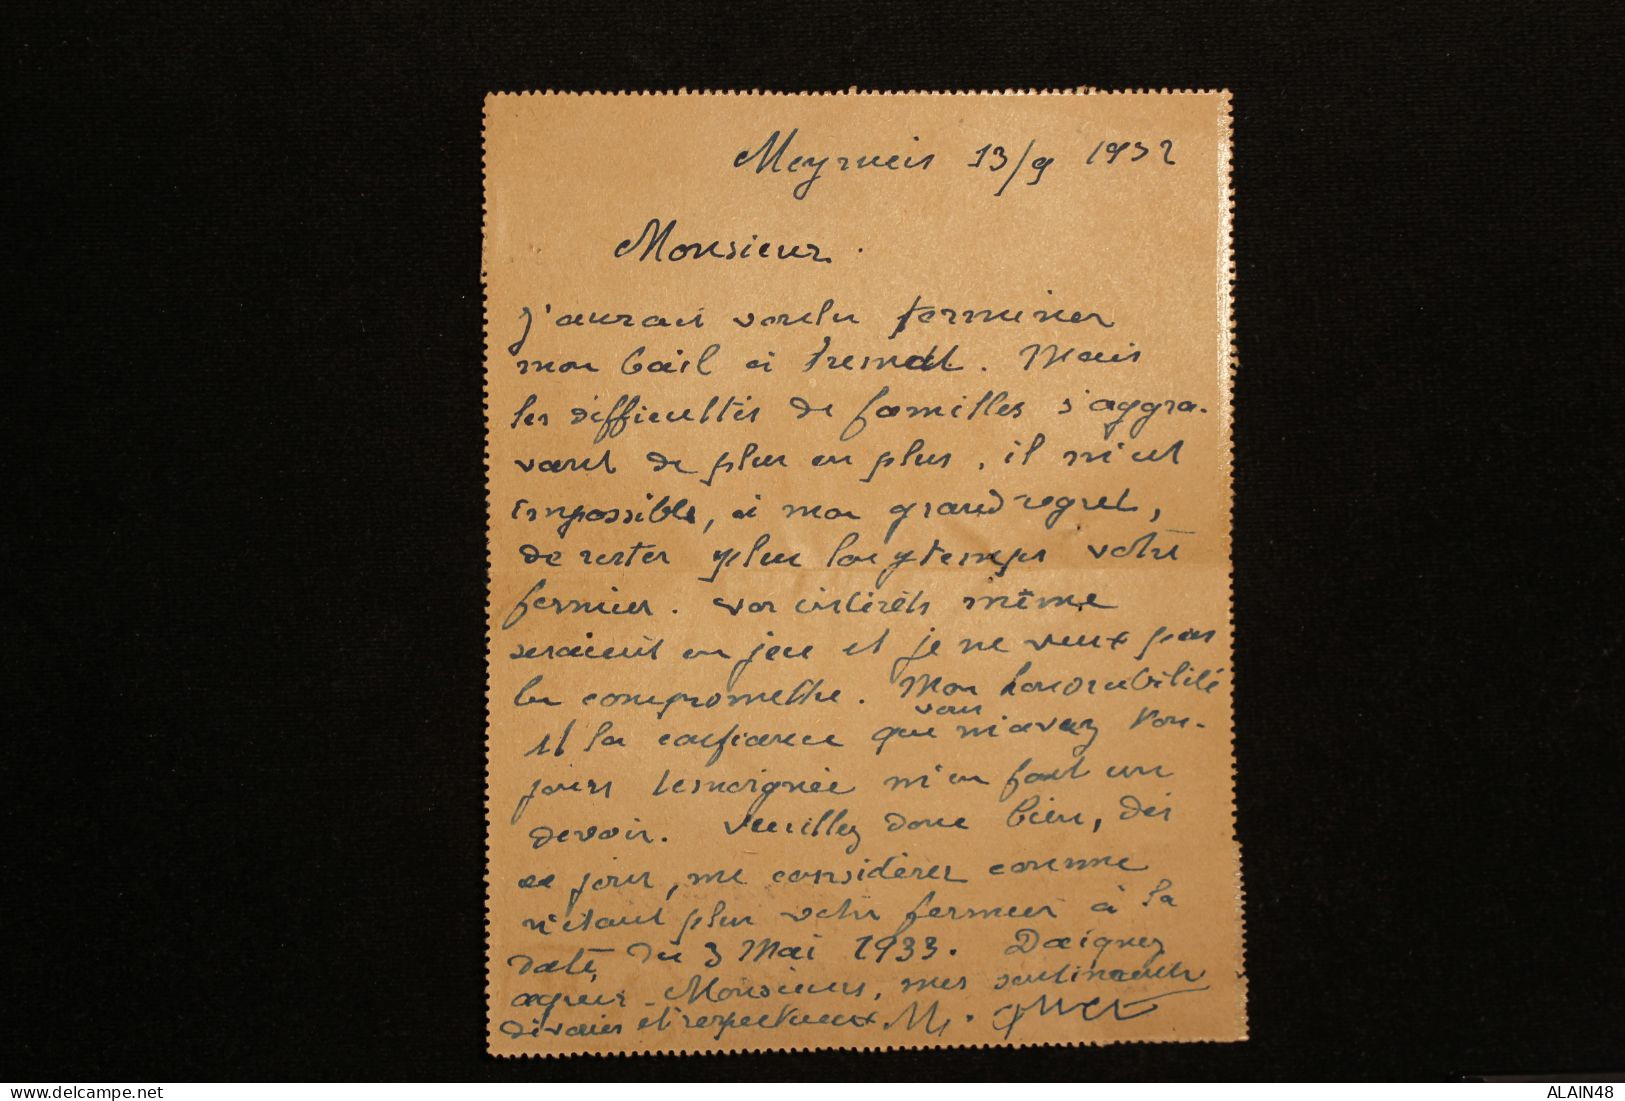 Meyrueis 13/9 1932
Monsieur.
J'aurais voulu terminer
mon bail à Mais
les difficultés de familles s'aggra-
vant de plus en plus, il m'est
impossible, à mon grand regret,
de rester plus longtemps votre
fermier. Vos intérêts même
seraient en jeu et je ne veux pas
les compromettre. Mon honorabilité
et la confiance que vous m'avez tou-
jours témoignée m'en fait un
devoir. Veuillez donc bien, dès
ce jour, me considérer comme
n'étant plus votre fermier à la
date du 3 Mai 1933. Daignez
agréer Monsieur, mes sentiments
dévoués et respectueux. M.
delcampe.net
ALAIN48